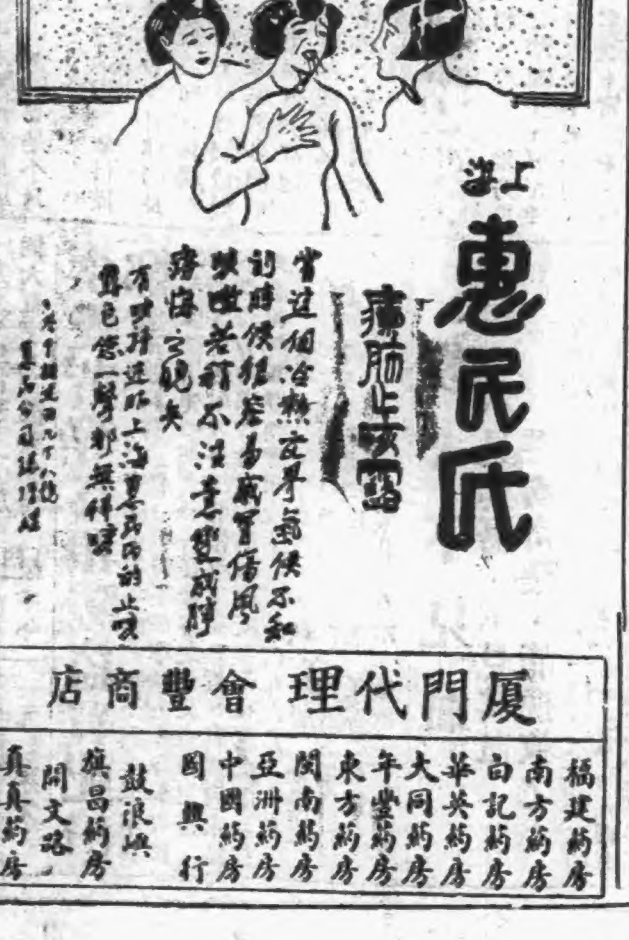 上海
惠民氏
療肺止咳露
當這個冷熱交界氣候不和
的時候很容易感冒傷風
咳嗽若稍不注意變成肺
癆悔之晚矣
有咳抖這瓶上海惠民氏的止咳
露包您一聲都無得咳
廈門代理 會豐商店
福建葯房
南方葯房
白記葯房
華英葯房
大同葯房
年豐葯房
東方葯房
閩南葯房
亞洲葯房
中國葯房
國興行
鼓浪嶼
旗昌葯房
開文路
真真葯房